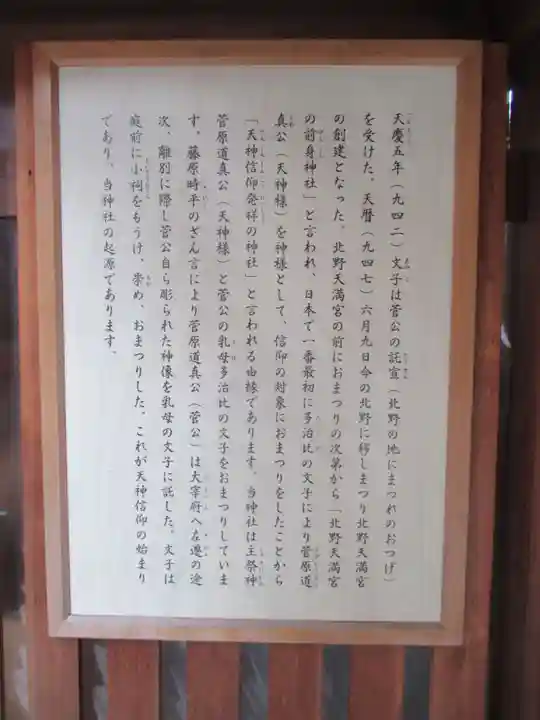 天慶五年（九四二）文子は菅公の託宣（北野の地にまつれのおつげ）
を受けた。天暦（九四七）六月九日今の北野に移しまつり北野天満宮
の創建となった。北野天満宮の前におまつりの次第から「北野天満宮
の前身神社」と言われ、日本で一番最初に多治比の文子により菅原道
真公（天神様）を神様として、信仰の対象におまつりをしたことから
「天神信仰発祥の神社」と言われる由縁であります。当神社は主祭神
菅原道真公（天神様）と菅公の乳母多治比の文子をおまつりしていま
す。藤原時平のざん言により菅原道真公（菅公）は大宰府へ左遷の途
次、離別に際し菅公自ら彫られた神像を乳母の文子に託した。文子は
庭前に小祠をもうけ、崇め、おまつりした。これが天神信仰の始まり
であり、当神社の起源であります。